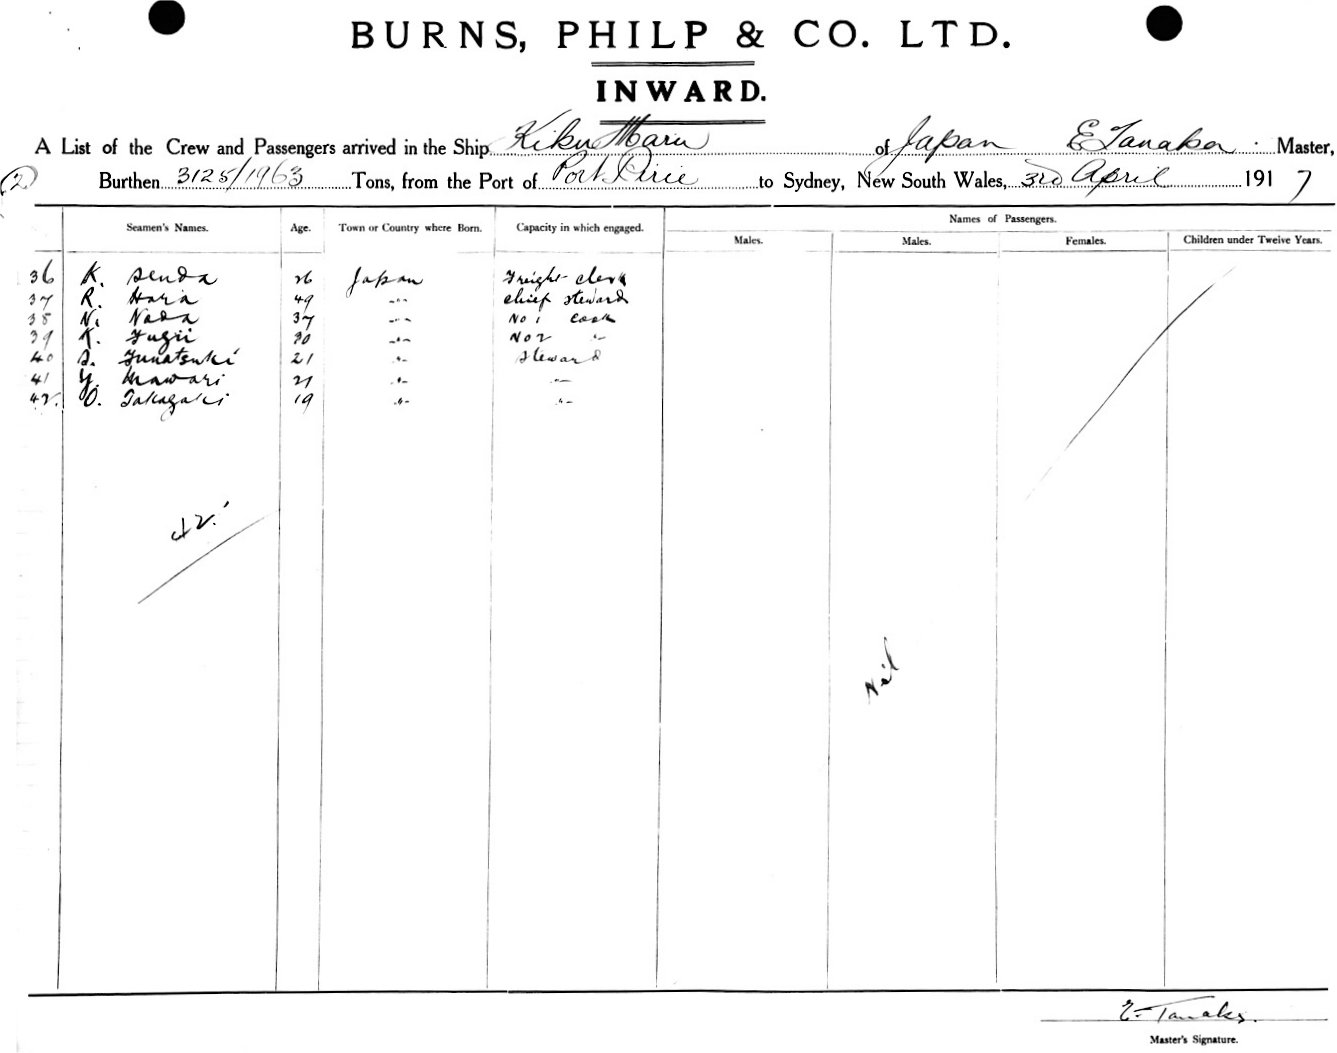 BURNS, PHILP & CO. LTD.
INWARD.
A List of the Crew and Passengers arrived in the Ship Kiku Maru of Japan E Tanaka Master,
(2) Burthen 3125/1963 Tons, from the Port of Port Pirie to Sydney, New South Wales, 3rd April 1917
Names of Passengers.
Seamen's Names. Age. Town or Country where Born. Capacity in which engaged. Males. Males. Females. Children under Twelve Years.
36 K. Senda 26 Japan Freight clerk
37 R. Hara 49 -"- chief steward
38 N. Nada 37 -"- No 1 cook
39 K. Fugii 30 -"- No 2 "
40 S. Funatsuki 21 -"- Steward
41 Y. 21 -"- -"-
42. O. Takagaki 19 -"- -"-
42.
Nil
E. Tanaka.
Master's Signature.